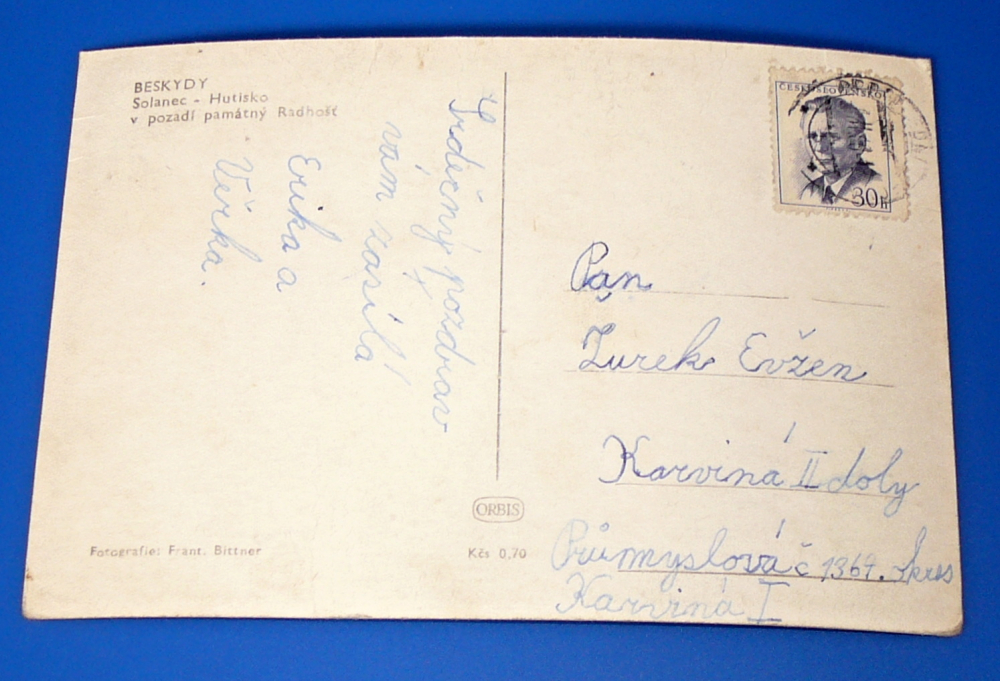 BESKYDY
Solanec - Hutisko
v pozadí památný Radhošť
Srdečný pozdrav
vám zasílá
Erika a
Věrka.
ČESKOSLOVENSKO
30h
Pan
Żurek Evžen
Karviná II doly
Průmyslová č 1367. okres
Karviná I
ORBIS
Fotografie: Frant. Bittner
Kčs 0,70